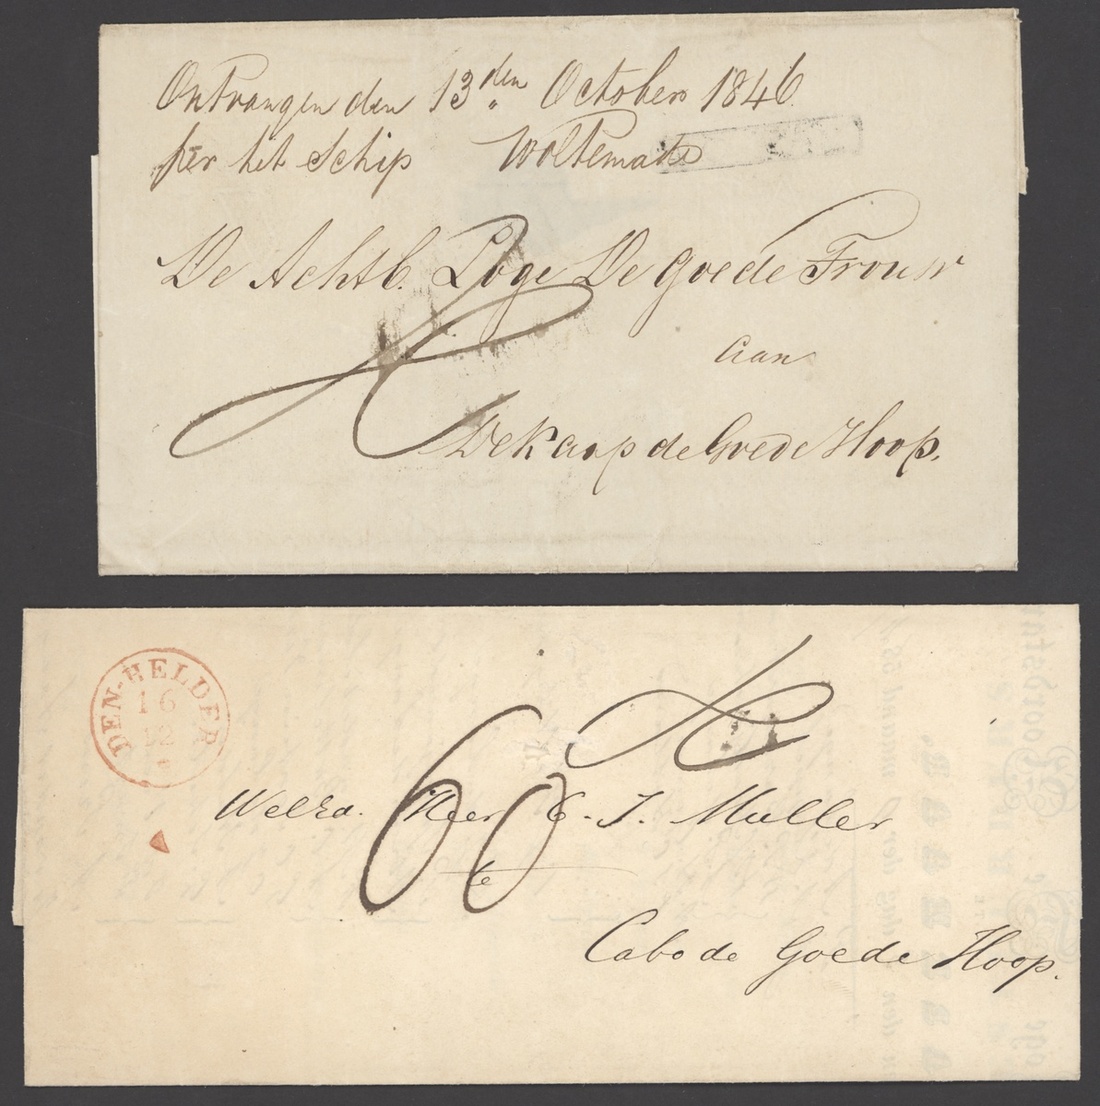 Ontvangen den 13den October 1846.
per het Schip Woltemade
De Achtb. Loge De Goede Trouw
aan
De Kaap de Goede Hoop.
DEN-HELDER
16
12
60
WelEd. Heer C. J. Muller
te
Cabo de Goede Hoop.